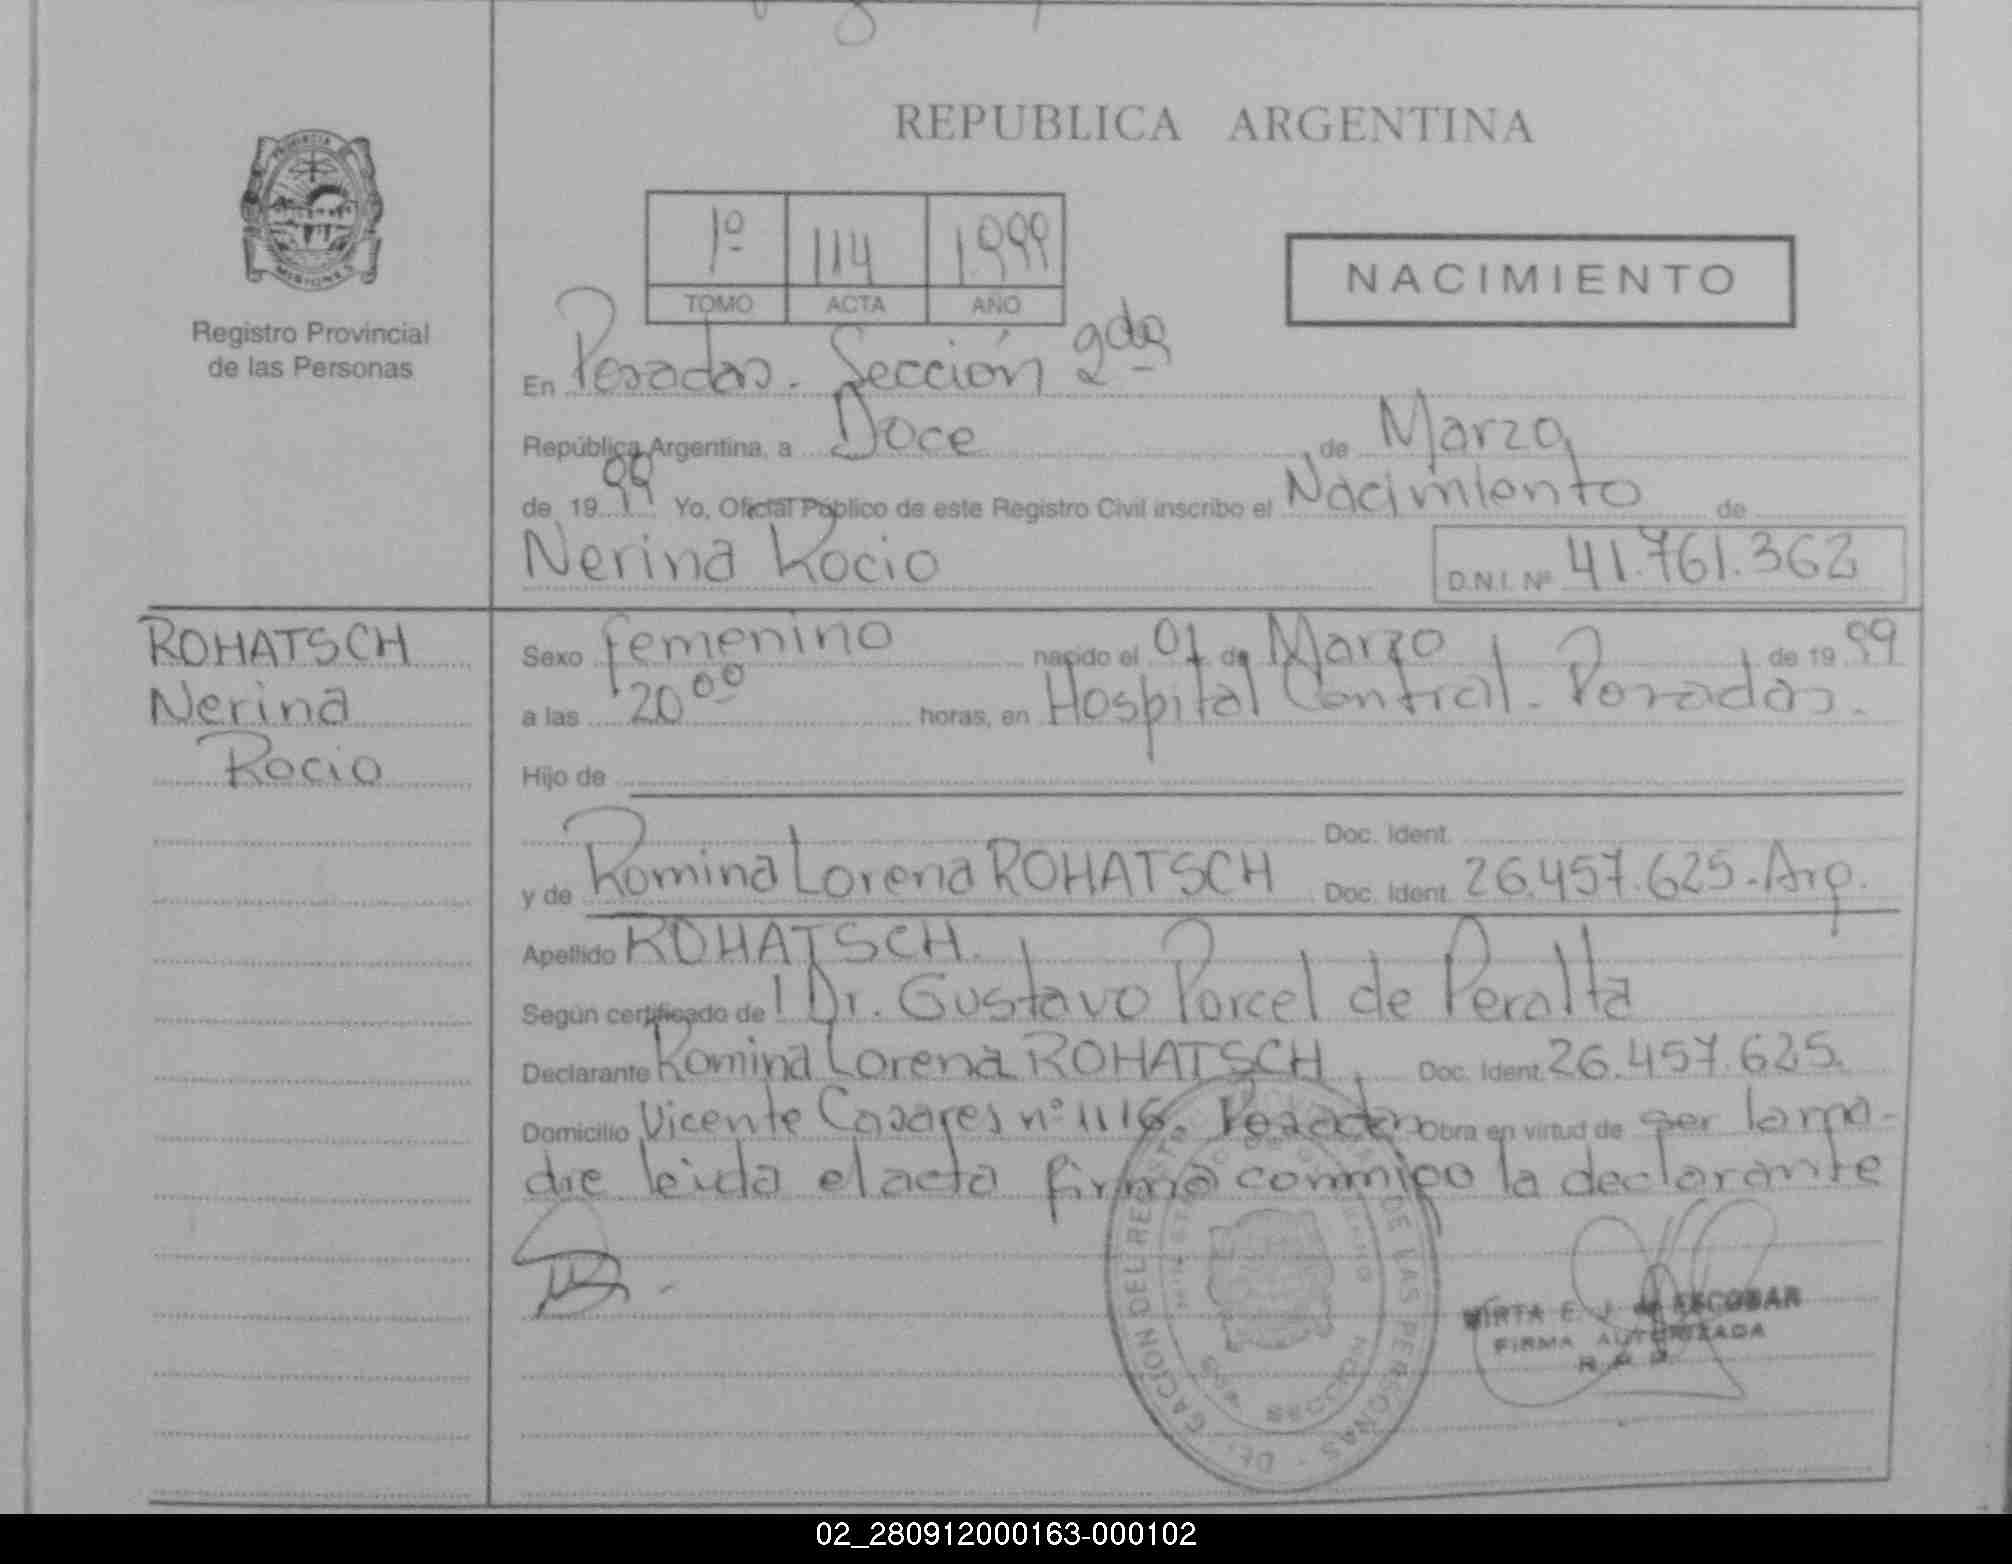 REPUBLICA ARGENTINA
PROVINCIA
MISIONES
Registro Provincial
de las Personas
1º 114 1.999
TOMO ACTA AÑO
NACIMIENTO
En Posadas. Sección 2da
República Argentina, a Doce de Marzo
de 19 99 Yo, Oficial Público de este Registro Civil inscribo el Nacimiento de
Nerina Rocio D.N.I. Nº 41.761.362
ROHATSCH
Nerina
Rocio
Sexo femenino nacido el 01 de Marzo de 19 99
a las 20 00 horas, en Hospital Central - Posadas.
Hijo de
Doc. Ident.
y de Romina Lorena ROHATSCH Doc. Ident. 26.457.625-Arg.
Apellido ROHATSCH.
Según certificado de l Dr. Gustavo Porcel de Peralta
Declarante Romina Lorena ROHATSCH, Doc. Ident. 26.457.625.
Domicilio Vicente Casares nº 1116. Posadas Obra en virtud de ser la ma-
dre leida el acta firma conmigo la declarante
MIRTA E. J. de ESCOBAR
FIRMA AUTORIZADA
R. P. P.
DELEGACION DEL REGISTRO DE LAS PERSONAS
POSADAS MISIONES
02_280912000163-000102